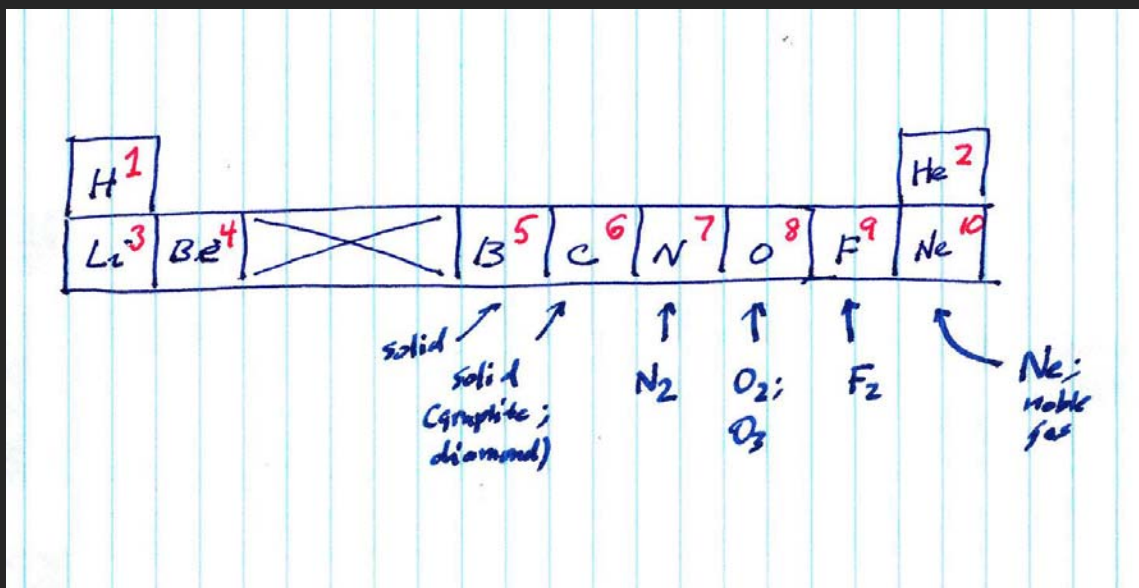 H 1
He 2
Li 3 Be 4 B 5 C 6 N 7 O 8 F 9 Ne 10
solid
solid
(graphite;
diamond)
N2
O2;
O3
F2
Ne;
noble
gas